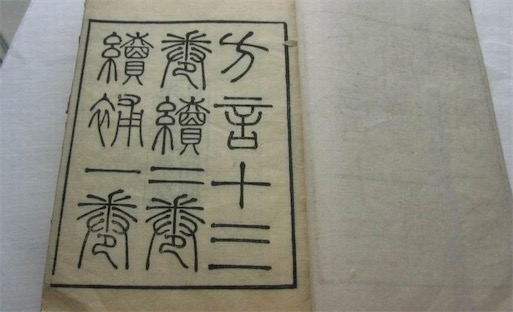 方言十三
卷續二卷
續補一卷